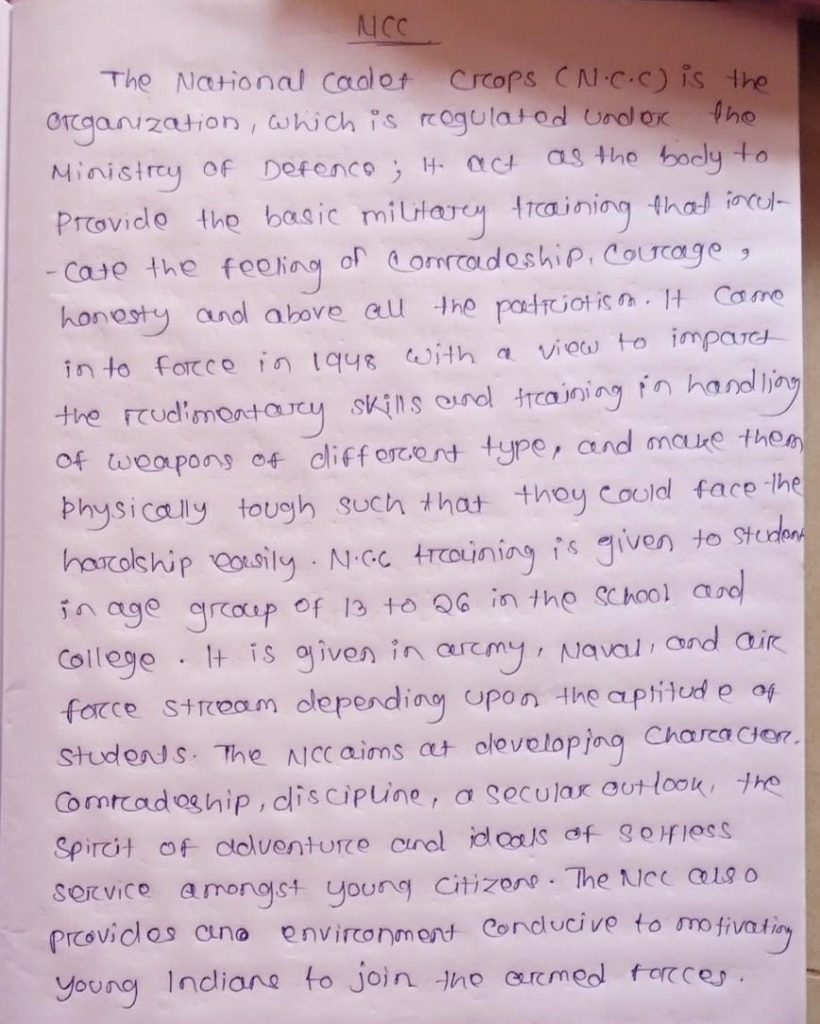 NCC
The National Cadet Crops (N.C.C) is the
organization, which is regulated under the
Ministry of Defence; It act as the body to
Provide the basic military training that incul-
-cate the feeling of Comradeship, Courage,
honesty and above all the patriotism. It Came
in to force in 1948 with a view to impart
the rudimentary skills and training in handling
of weapons of different type, and make them
physically tough such that they could face the
hardship easily. N.C.C training is given to student
in age group of 13 to 26 in the school and
College. It is given in army, Naval, and air
force stream depending upon the aptitude of
students. The NCC aims at developing Character.
Comradeship, discipline, a secular outlook, the
Spirit of adventure and ideals of selfless
service amongst young citizens. The NCC also
provides ano environment Conducive to motivating
young Indians to join the armed forces.